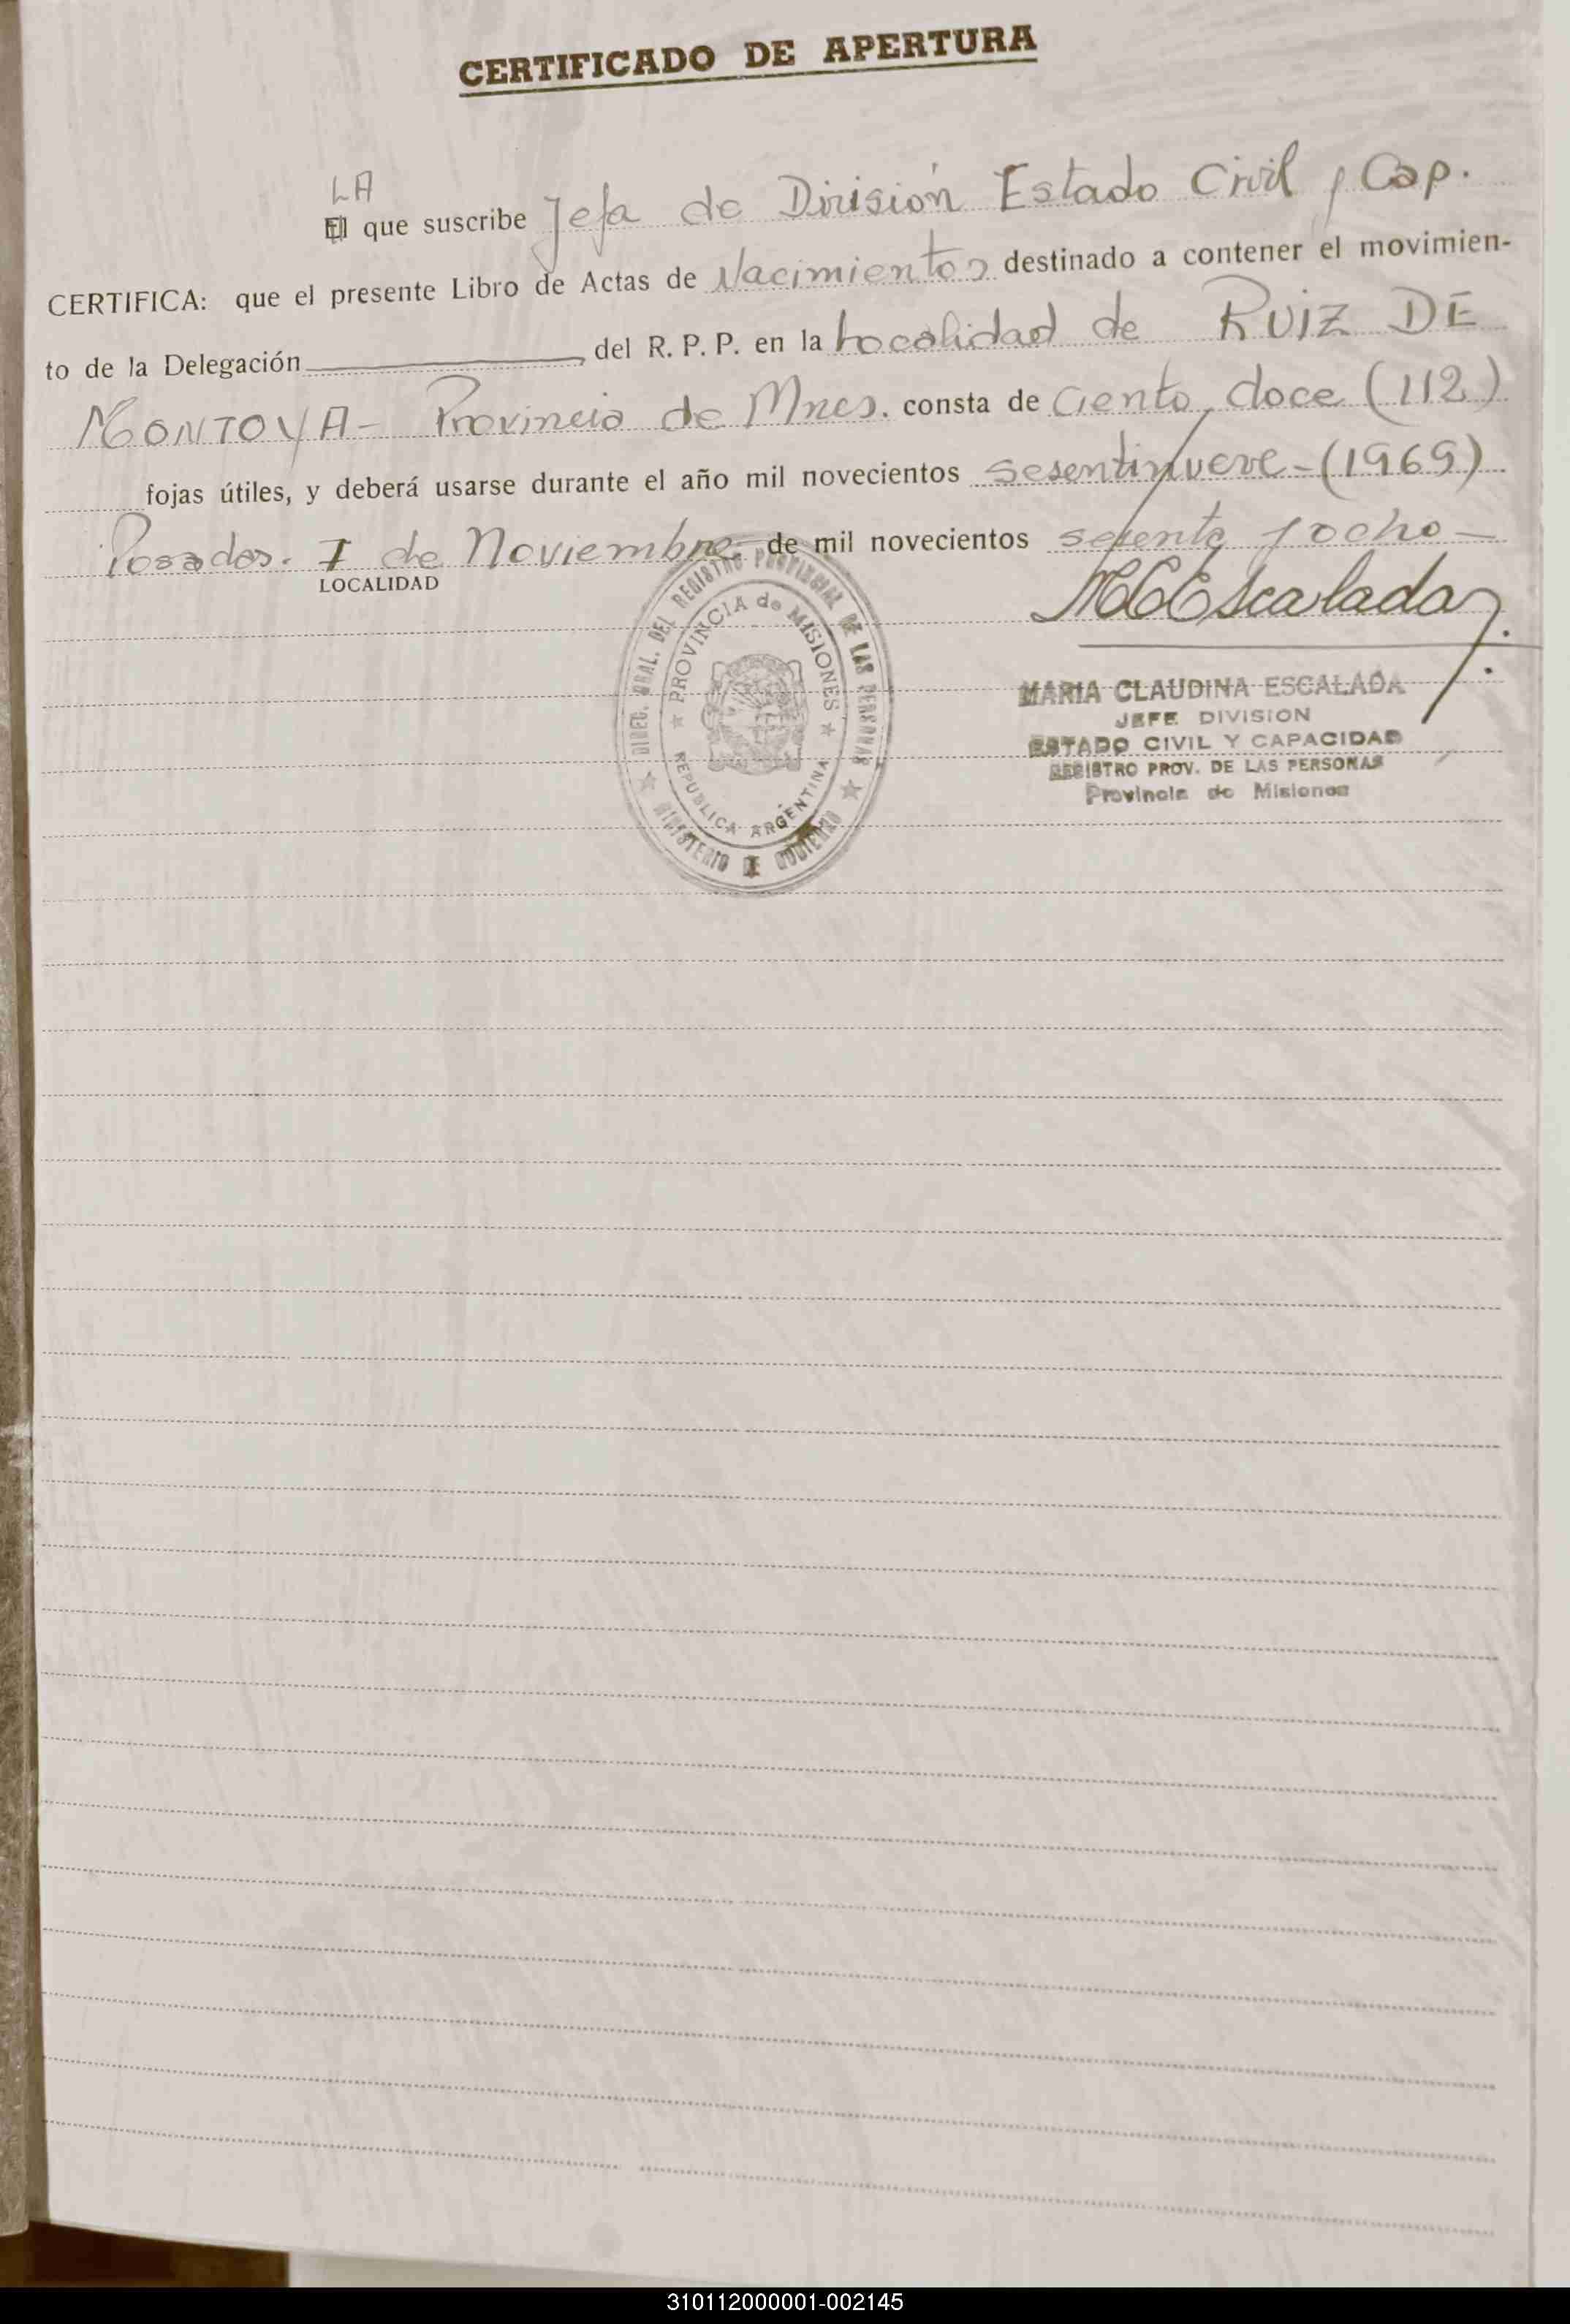 CERTIFICADO DE APERTURA
LA
El que suscribe Jefa de División Estado Civil y Cap.
CERTIFICA: que el presente Libro de Actas de Nacimientos destinado a contener el movimien-
to de la Delegación del R. P. P. en la Localidad de RUIZ DE
MONTOYA - Provincia de Mnes. consta de ciento doce (112)
fojas útiles, y deberá usarse durante el año mil novecientos sesentinueve - (1969)
Posadas. 7 de Noviembre de mil novecientos sesenta y ocho —
LOCALIDAD
MCEscalada
DIREC. GRAL. DEL REGISTRO PROVINCIAL DE LAS PERSONAS
PROVINCIA de MISIONES
REPUBLICA ARGENTINA
MINISTERIO DE GOBIERNO
MARIA CLAUDINA ESCALADA
JEFE DIVISION
ESTADO CIVIL Y CAPACIDAD
REGISTRO PROV. DE LAS PERSONAS
Provincia de Misiones
310112000001-002145